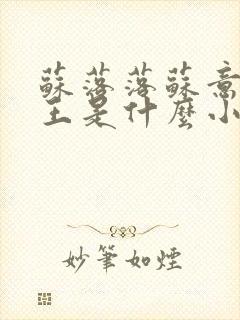 蘇落落蘇意
主是什麼小
妙筆如煙